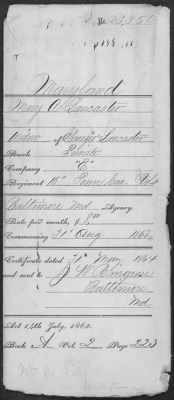 No. 20,851
Maryland
Mary A Lancaster
Widow of Lancaster
Rank Private
Company "E"
Regiment 15" Penn Cav. Vols
Baltimore Md Agency.
Rate per month, $ 8 00
Commencing 31" Aug 1863
Certificate dated 31st May 1864
and sent to J W
Baltimore
Md
Act 14th July, 1862.
Book A Vol. 2 Page 223